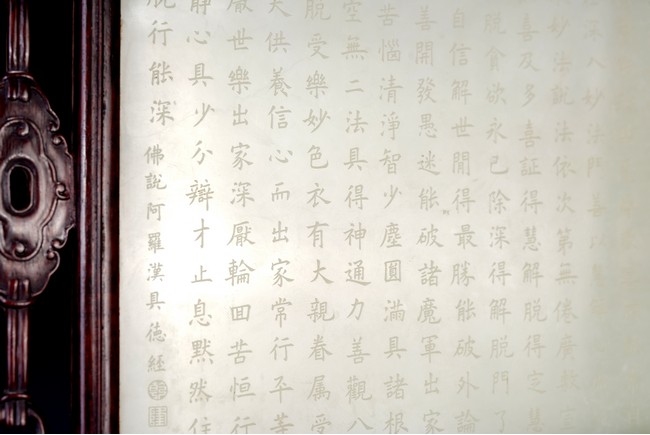 入妙法門善
妙法說法依次第無倦廣
喜及多喜証得慧解脫得定慧
脫貪欲永已除深得解脫門了
自信解世間得最勝能破外論
善開發愚迷能破諸魔軍出家
苦惱清淨智少塵圓滿具諸根
空無二法具得神通力善觀八
脫受樂妙色衣有大親眷属受
天供養信心而出家常行平等
厭世樂出家深厭輪回苦恒行
靜心具少分辯才止息默然住
脫行能深
佛說阿羅漢具德經